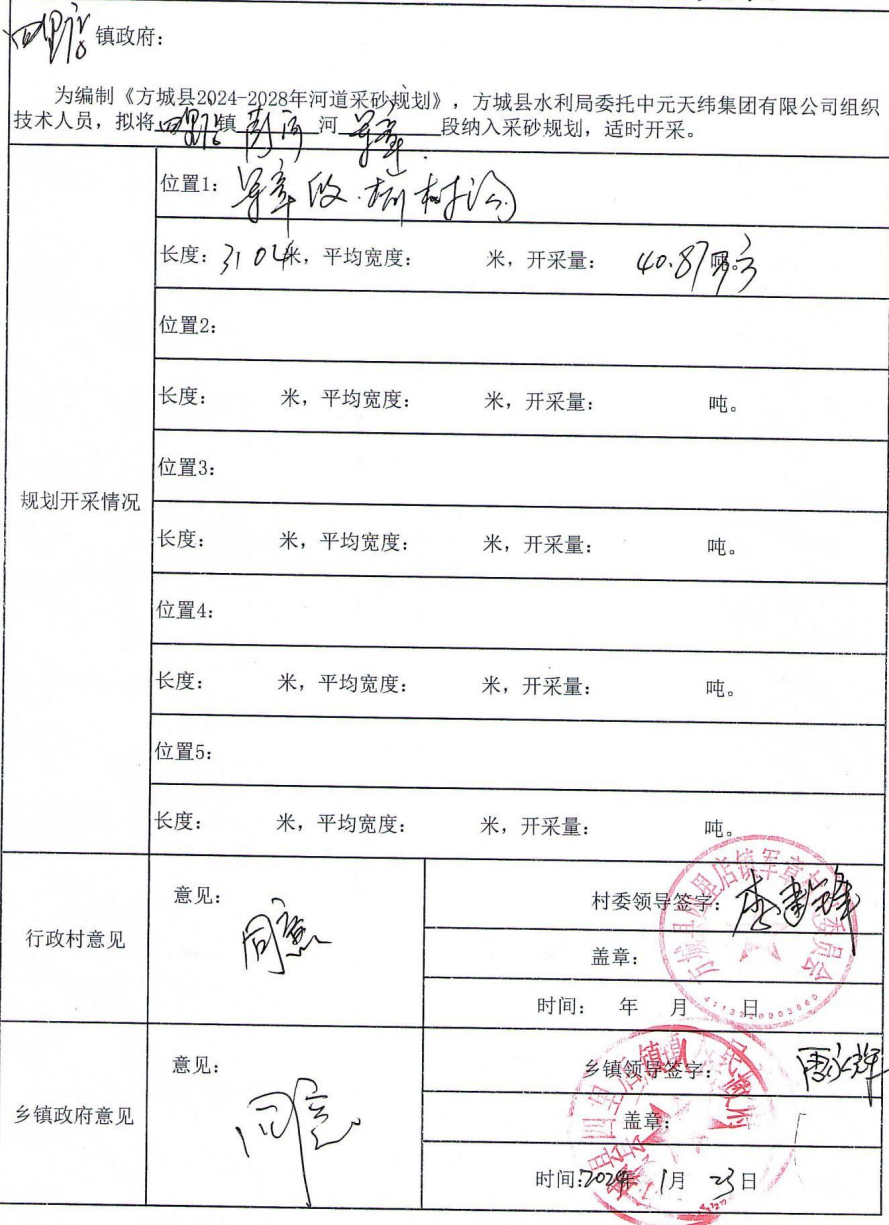 四里店镇政府：
为编制《方城县2024-2028年河道采砂规划》，方城县水利局委托中元天纬集团有限公司组织
技术人员，拟将四里店镇 河军章段纳入采砂规划，适时开采。
规划开采情况
位置1：军章段
长度：3102米，平均宽度： 米，开采量：40.87万方
位置2：
长度： 米，平均宽度： 米，开采量： 吨。
位置3：
长度： 米，平均宽度： 米，开采量： 吨。
位置4：
长度： 米，平均宽度： 米，开采量： 吨。
位置5：
长度： 米，平均宽度： 米，开采量： 吨。
行政村意见
意见：
同意
村委领导签字：
盖章：
时间： 年 月 日
方城县四里店镇军章村 委员会
乡镇政府意见
意见：
同意
乡镇领导签字：
盖章：
时间：2024年1月23日
县四里店镇人民政府